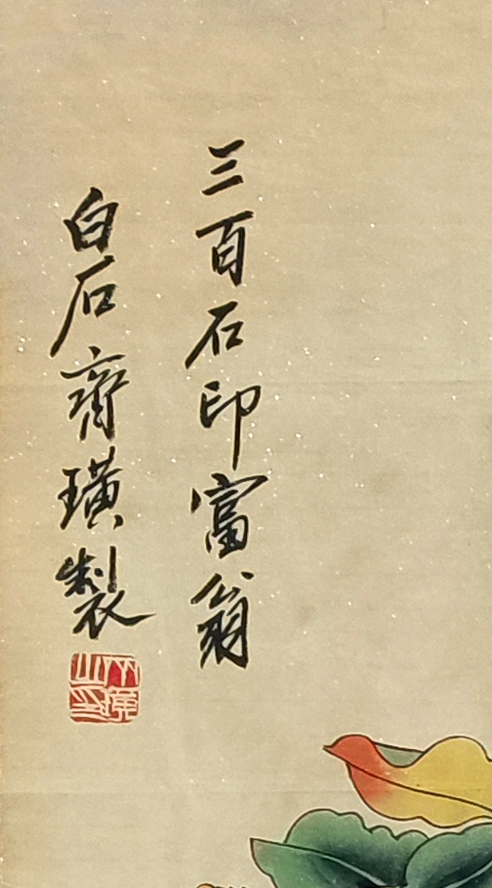 三百石印富翁
白石齊璜製